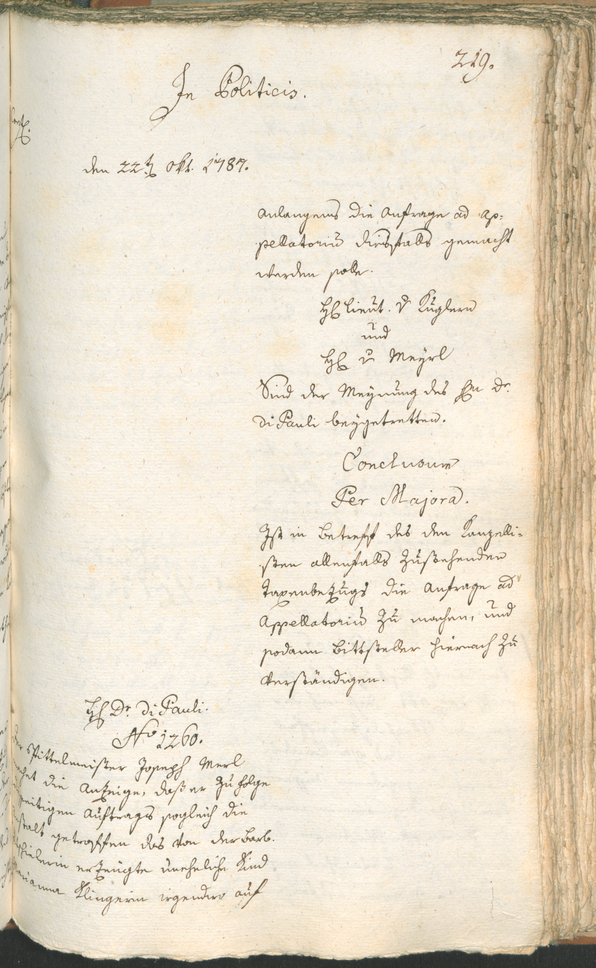 219.
In Politicis.
den 22t Okt. 1787.
anlangend die Anfrage ad Ap=
pellatoriū diesfalls gemacht
werden solle.
H. Lieut. v Kuglern
und
H. v Meyrl
Sind der Meynung des Hn Dr.
di Pauli beygetretten.
Conclusum
Per Majora.
Ist in Betreff des den Kanzelli=
sten allenfalls zustehenden
Taxenbezugs die Anfrage ad
Appellatoriū zu machen, und
sodann Bittsteller hiernach zu
verständigen.
H. Dr. di Pauli.
No 1260.
Spittelmeister Joseph Merl
die Anzeige, daß er zu folge
Auftrags sogleich die
getroffen das von der Barb.
erzeugte uneheliche Kind
Klingerin irgendwo auf